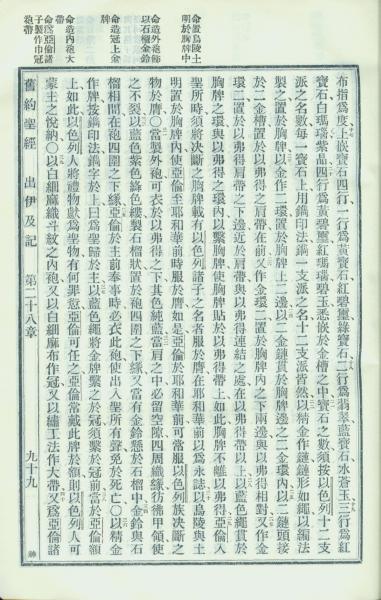 命置烏陵土明於胸牌中
命造外袍飾以石榴金鈴
命造冠上金牌
命造內袍大帶
命爲亞倫諸子製作巾冠袍帶
布指爲度上嵌寶石四行一行爲黃寶石紅碧璽綠寶石二行爲翡翠藍寶石水蒼玉三行爲紅
寶石白瑪瑙紫晶四行爲黃碧璽紅瑪瑙碧玉悉嵌於金槽之中寶石之數須按以色列十二支
派之名數每一寶石上用鐫印法鐫一支派之名十二支派皆然以精金作鏈鏈形如繩以編法
製之置於胸牌以金作二環置於胸牌上二邊以二金鏈貫於胸牌邊之二金環內以二鏈頭接
於二金槽置於以弗得之肩帶在前又作金環二置於胸牌內之下兩邊與以弗得相對又作金
環二置於以弗得肩帶之下邊近於肩帶與以弗得連結之處在以弗得帶以上以藍色繩貫於
胸牌之環與以弗得之環內以繫胸牌使胸牌貼於以弗得帶上如此胸牌不離以弗得亞倫入
聖所時須將決斷之胸牌載有以色列諸子之名者服於膺在耶和華前以爲永誌以烏陵與土
明置於胸牌內使亞倫至耶和華前時服於膺如是亞倫於耶和華前可常服以色列族決斷之
物於膺〇當製外袍可衣於以弗得之下其色純藍當肩之中必留空隙四周織緣彷彿甲領使
之不裂以藍色紫色絳色縷製石榴狀綴於袍四圍之下緣又當有金鈴懸於石榴中金鈴與石
榴相間在袍四圍之下緣亞倫於主前奉事時必衣此袍使出入聖所有聲免於死亡〇以精金
作牌按鐫印法鐫字於上曰爲聖歸於主以藍色繩將金牌繫之於冠須繫於冠前當於亞倫額
上如此以色列人將禮物獻爲聖物有何罪愆亞倫可任之亞倫常戴此牌於額則以色列人可
蒙主之悅納〇以白細麻織斗紋之內袍又以白細麻布作冠又以繡工法作大帶又爲亞倫諸
舊約聖經 出伊及記 第二十八章 九十九